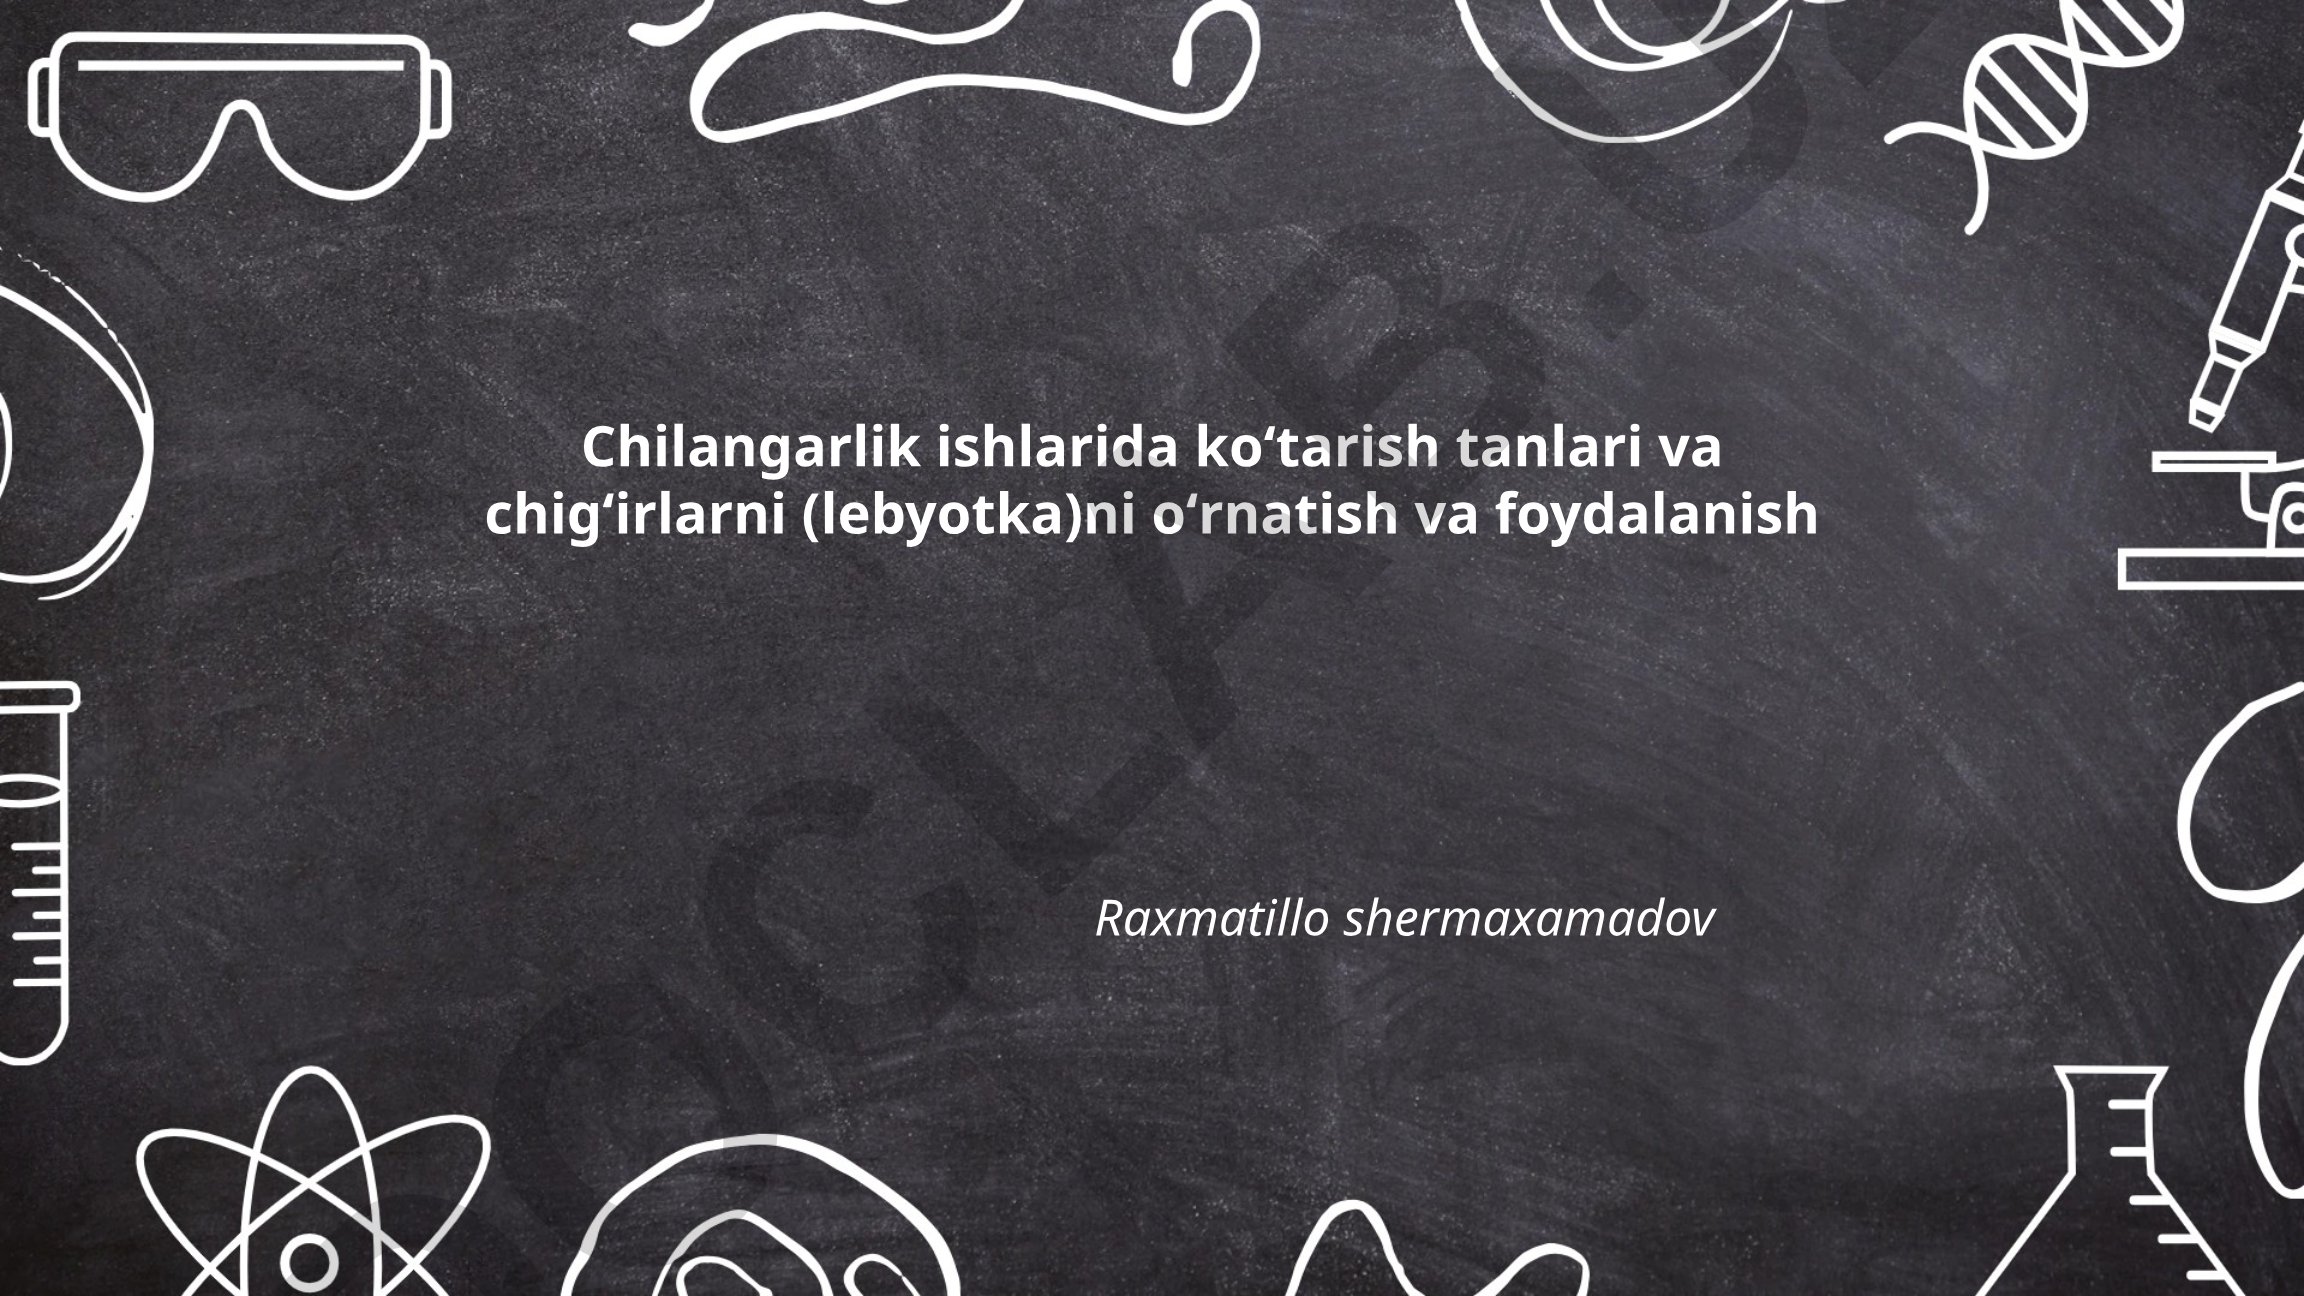 Chilangarlik ishlarida ko‘tarish tanlari va
chig‘irlarni (lebyotka)ni o‘rnatish va foydalanish
Raxmatillo shermaxamadov